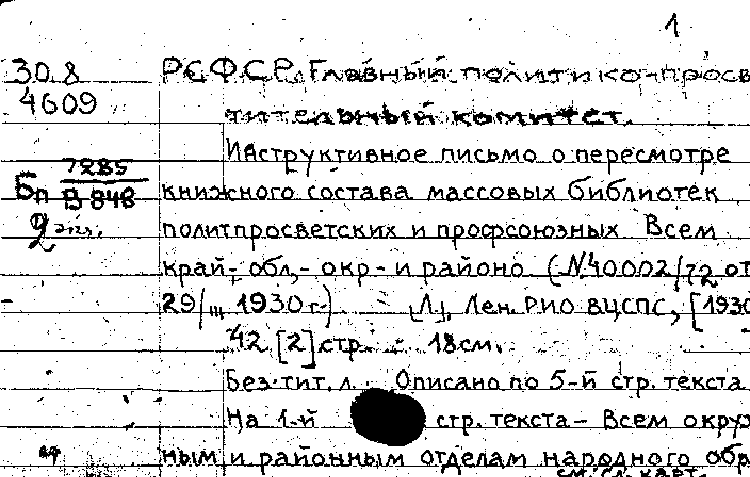 1
30.8 РСФСР. Главный политико-просве
4609 тительный комитет.
Инструктивное письмо о пересмотре
7285
Бп В 848 книжного состава массовых библиотек
2 экз. политпросветских и профсоюзных. Всем
край-, обл.- окр- и районо (№40002/72 от
29/III 1930 г.) - Л., Лен. РИО ВЦСПС, [1930
42 [2] стр. 18 см.
Без тит. л. Описано по 5-й стр. текста
На 1-й стр. текста - Всем окруж
ным и районным отделам народного обр
см. сл. карт.